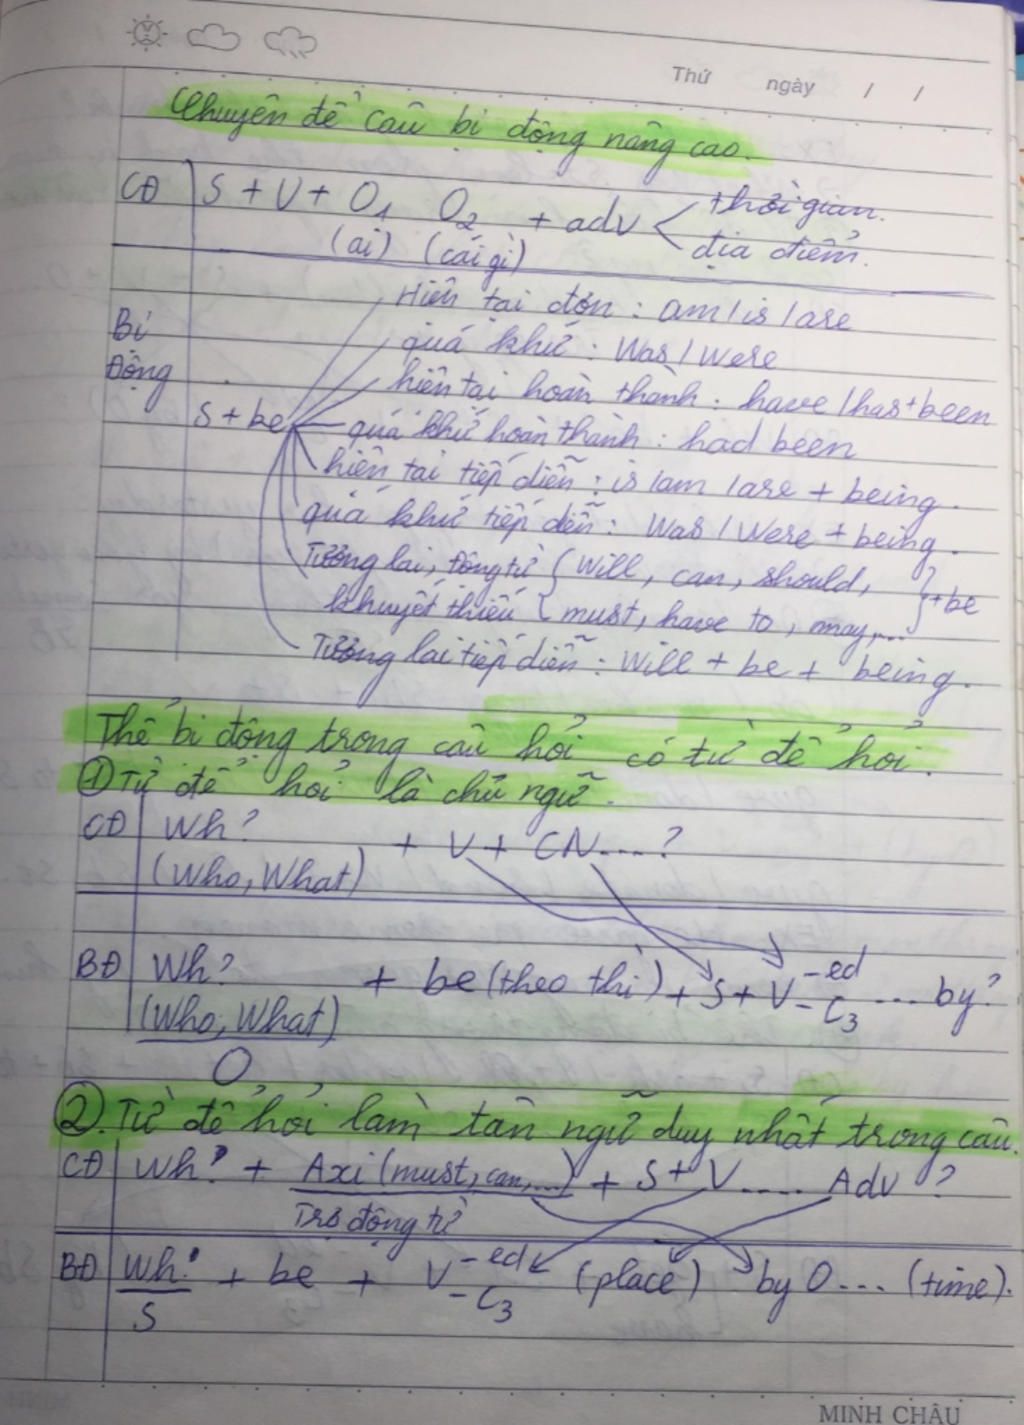 Thứ ngày / /
Chuyên đề câu bị động nâng cao.
CĐ S + V + O1 O2 + adv < thời gian.
(ai) (cái gì) địa điểm.
Hiện tại đơn : am / is / are
Bị quá khứ : Was / Were
Động hiện tại hoàn thành : have / has + been
S + be quá khứ hoàn thành : had been
hiện tại tiếp diễn : is / am / are + being.
quá khứ tiếp diễn : Was / Were + being.
Tương lai, động từ { Will, can, should, } + be
khuyết thiếu { must, have to, may,...
Tương lai tiếp diễn : Will + be + being.
Thể bị động trong câu hỏi có từ để hỏi.
① Từ để hỏi là chủ ngữ.
CĐ Wh? + V + CN....?
(Who, What)
BĐ Wh? + be (theo thì) + S + V -ed .... by?
(Who, What) - C3
O
②. Từ để hỏi làm tân ngữ duy nhất trong câu.
CĐ Wh? + Axi (must, can,...) + S + V.... Adv ?
Trợ động từ
BĐ Wh? + be + V -ed (place) by O... (time).
S - C3
MINH CHÂU